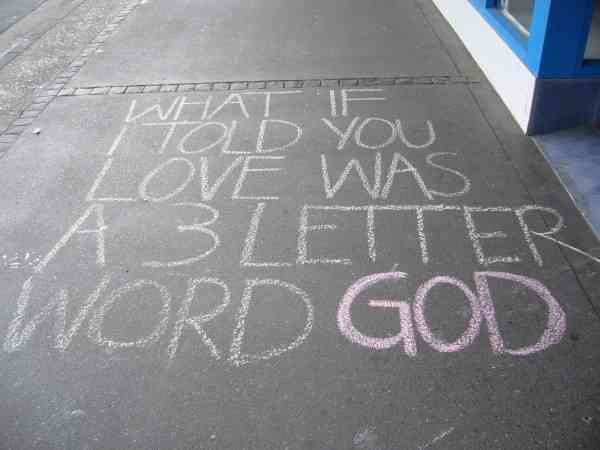 WHAT IF
I TOLD YOU
LOVE WAS
A 3 LETTER
WORD GOD